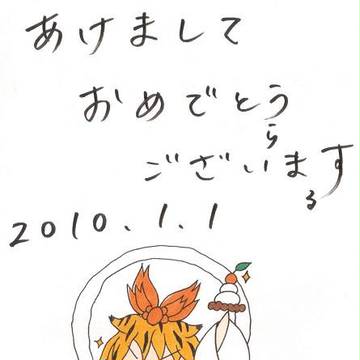 あけまして
おめでとう
ら
ございます
る
2010.1.1